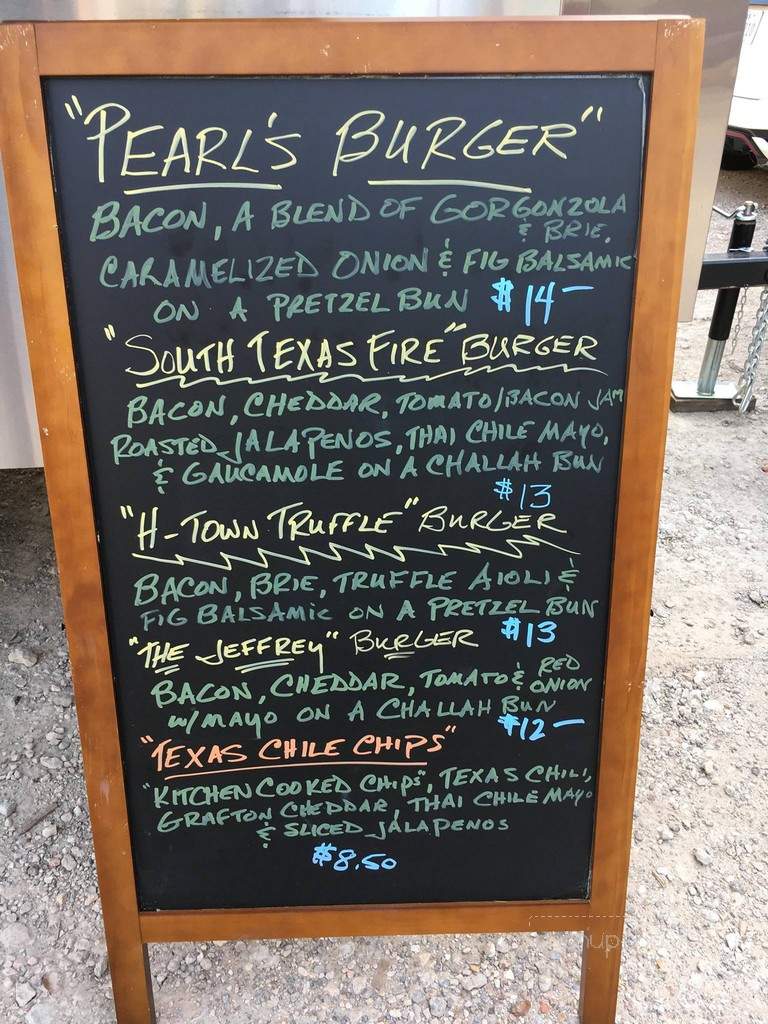 "PEARL'S BURGER"
BACON, A BLEND OF GORGONZOLA
& BRIE,
CARAMELIZED ONION & FIG BALSAMIC
ON A PRETZEL BUN $14-
"SOUTH TEXAS FIRE" BURGER
BACON, CHEDDAR, TOMATO/BACON JAM
ROASTED JALAPENOS, THAI CHILE MAYO,
& GAUCAMOLE ON A CHALLAH BUN
$13
"H-TOWN TRUFFLE" BURGER
BACON, BRIE, TRUFFLE AIOLI &
FIG BALSAMIC ON A PRETZEL BUN
$13
"THE JEFFREY" BURGER
BACON, CHEDDAR, TOMATO & RED
ONION
w/MAYO ON A CHALLAH BUN
$12-
"TEXAS CHILE CHIPS"
"KITCHEN COOKED CHIPS", TEXAS CHILI,
GRAFTON CHEDDAR, THAI CHILE MAYO
& SLICED JALAPENOS
$8.50